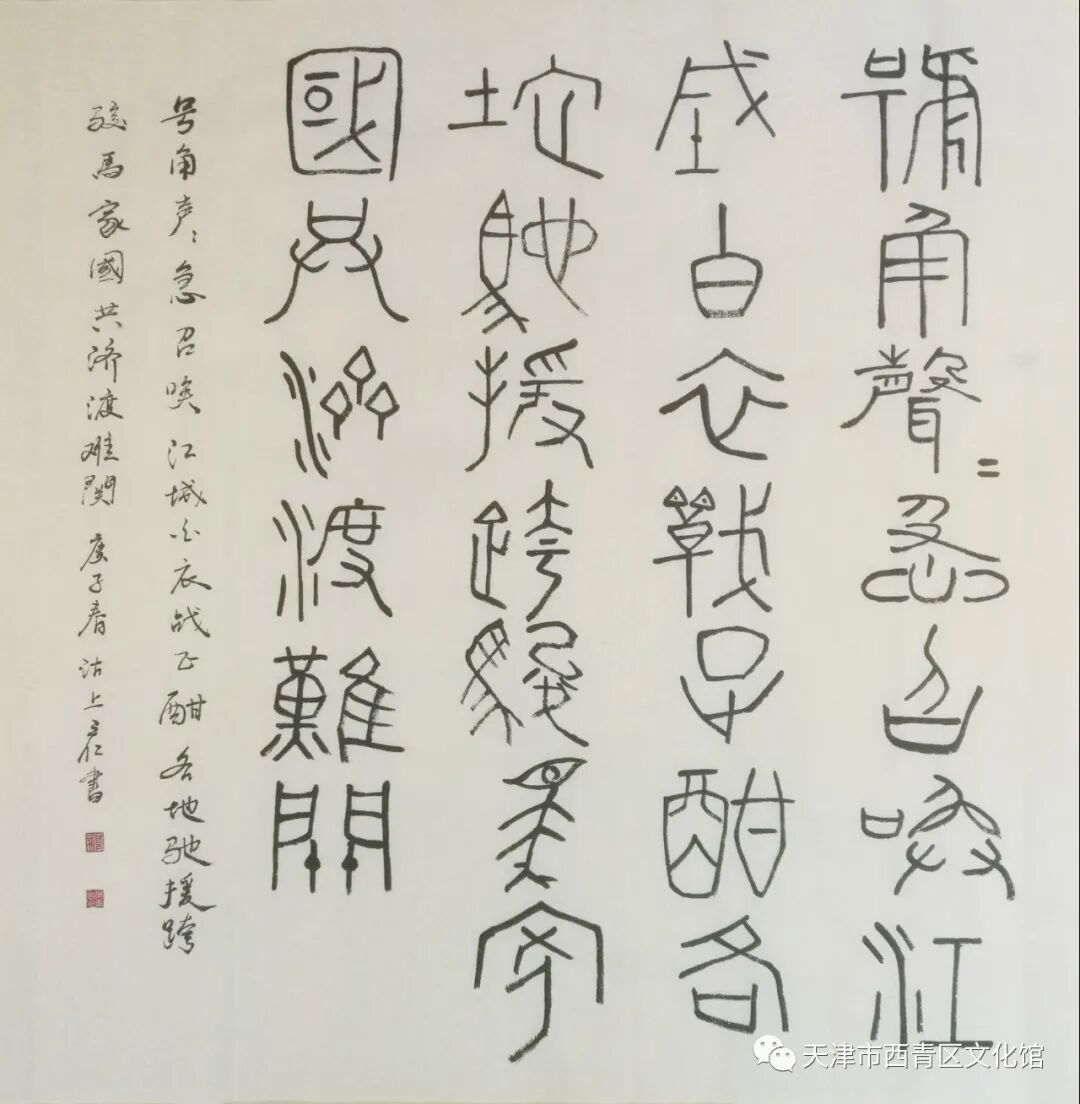 號角聲=急召喚江
城白衣戰正酣各
地馳援跨駿馬家
國共濟渡難關
号角声々急召唤江城白衣战正酣各地驰援跨
骏馬家國共济渡难関 庚子春沽上 书
天津市西青区文化馆